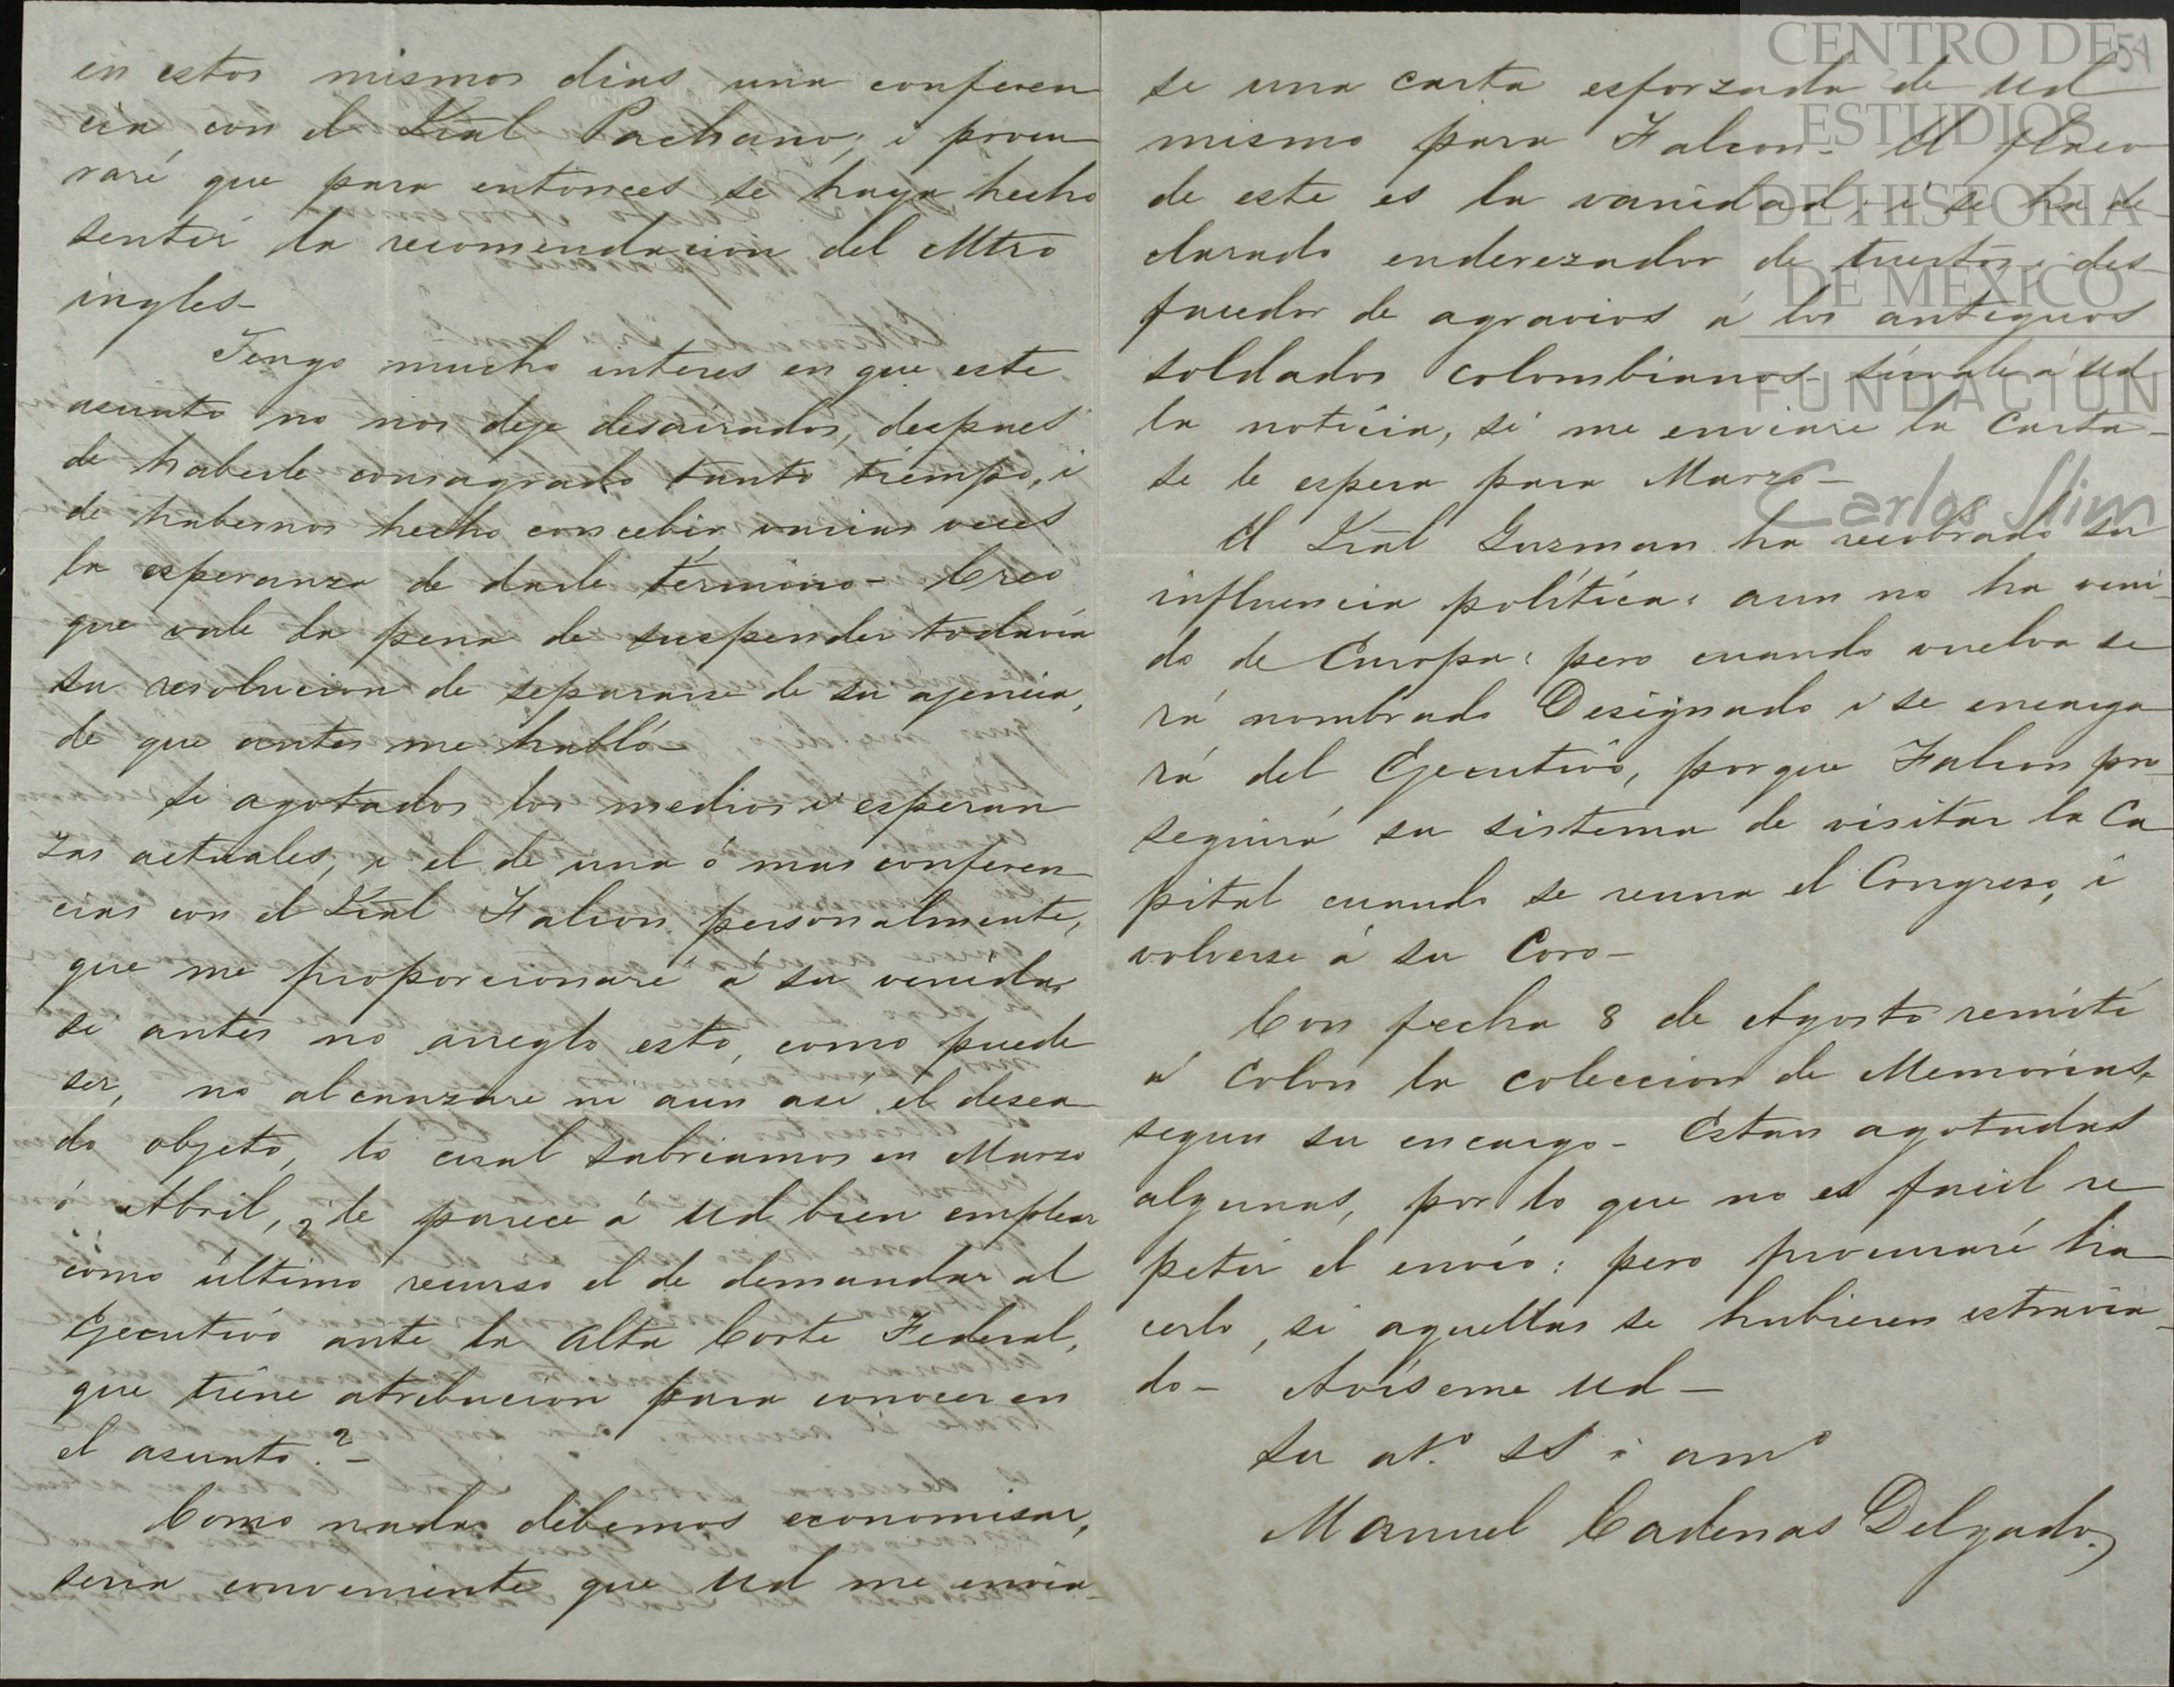 en estos mismos dias una conferen
cia con el Gral Pachano; i procu
raré que para entonces se haya hecho
sentir la recomendacion del Mtro
ingles-
Tengo mucho interes en que este
asunto no nos deje desairados, despues
de haberle consagrado tanto tiempo, i
de habernos hecho concebir varias veces
la esperanza de darle termino- Creo
que vale la pena de suspender todavia
su resolucion de separarse de su ajencia,
de que antes me habló-
Si agotados los medios i esperan
zas actuales, i el de una ó mas conferen
cias con el Gral Falcon personalmente,
que me proporcionaré á su venida,
si antes no arreglo esto, como puede
ser, no alcanzare ni aun asi el desea
do objeto, lo cual sabriamos en Marzo
ó Abril, ¿le parece á Ud bien emplear
como último recurso el de demandar al
Ejecutivo ante la Alta Corte Federal,
que tiene atribucion para conocer en
el asunto?-
Como nada debemos economisar,
seria conveniente que Ud me envia-
se una carta esforzada de Ud
mismo para Falcon- El flaco
de este es la vanidad, i se ha de-
clarado enderezador de tuertos i des-
facedor de agravios á los antiguos
soldados colombianos- Sirvale á Ud
la noticia, si me enviare la Carta-
Se le espera para Marzo-
El Gral Guzman ha recobrado su
influencia política: aun no ha veni-
do de Europa: pero cuando vuelva se
rá nombrado Designado i se encarga
rá del Ejecutivo, porque Falcon pro-
seguirá su sistema de visitar la Ca
pital cuando se reuna el Congreso, i
volverse á su Coro-
Con fecha 8 de Agosto remití
á Colon la coleccion de Memorias,
segun su encargo- Estan agotadas
algunas, por lo que no es facil re
petir el envío: pero procuraré ha-
cerlo, si aquellas se hubieren estravia-
do- Avíseme Ud-
Su at.° SS i am°
Manuel Cadenas Delgado
54
CENTRO DE
ESTUDIOS
DE HISTORIA
DE MÉXICO
FUNDACIÓN
Carlos Slim